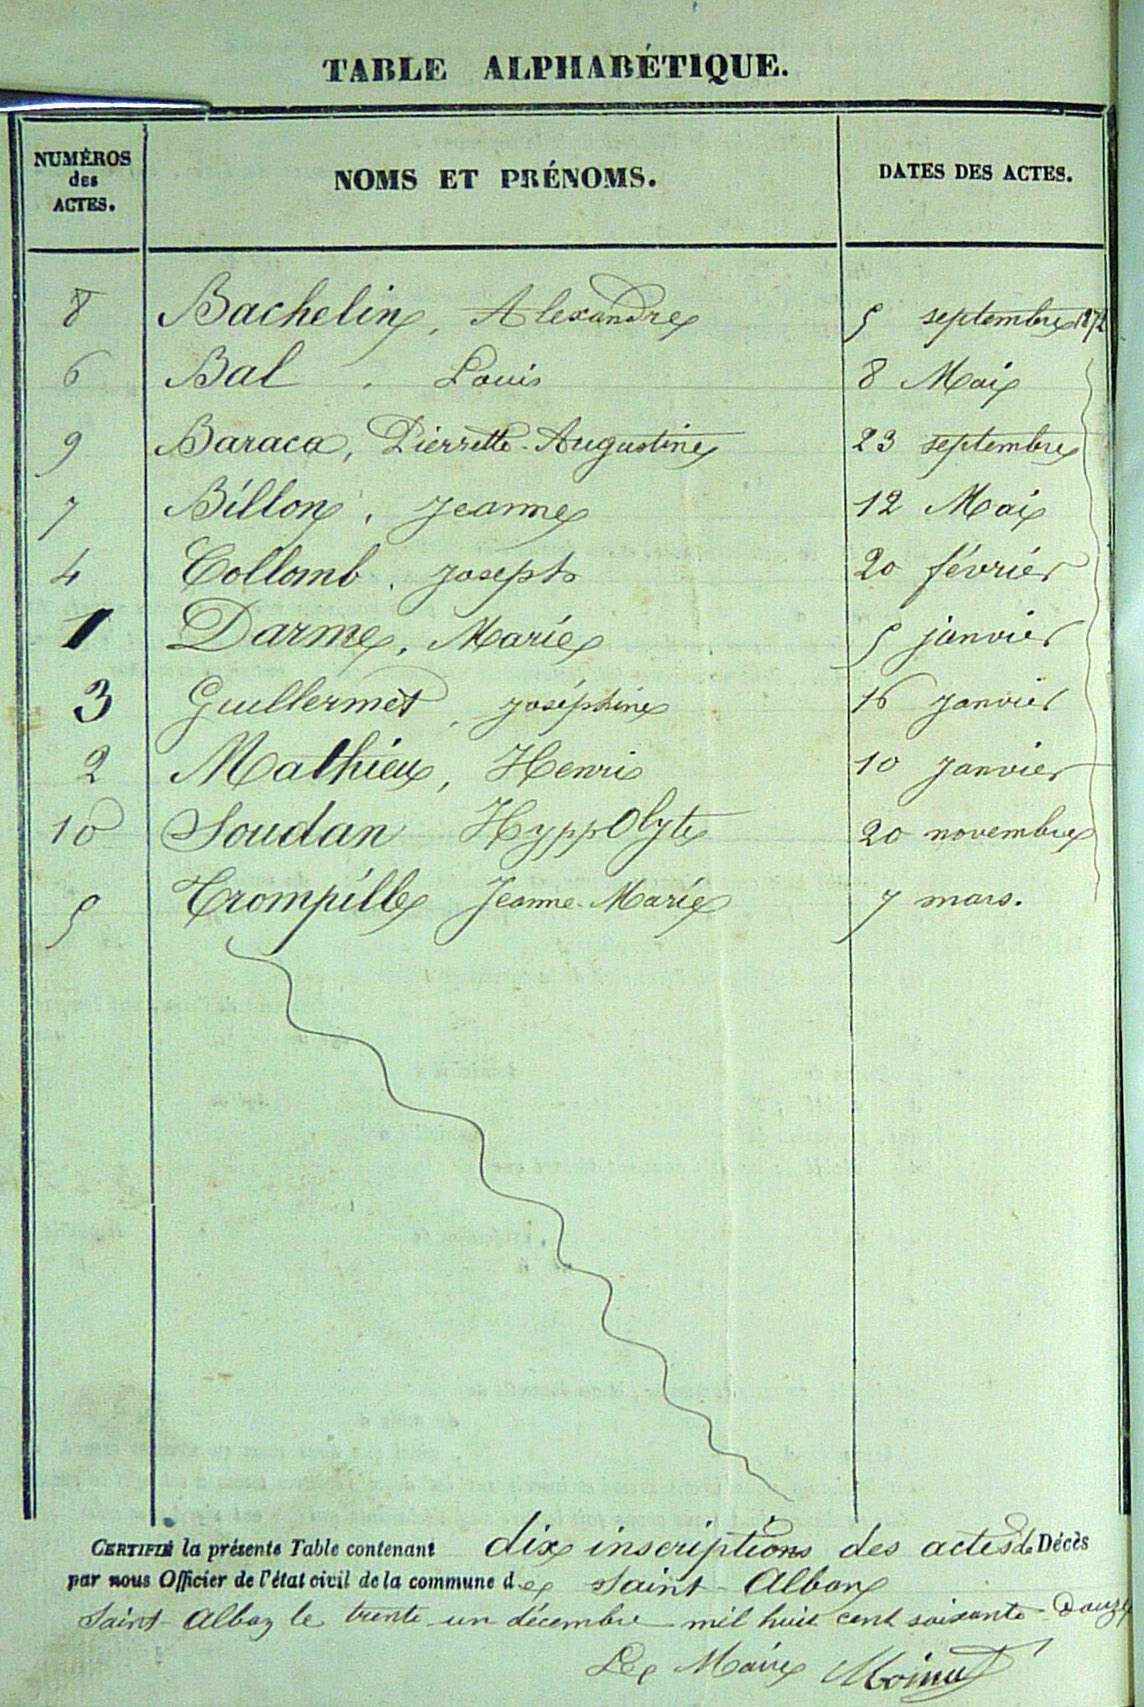 TABLE ALPHABÉTIQUE.
NUMÉROS des ACTES. NOMS ET PRÉNOMS. DATES DES ACTES.
8 Bachelin, Alexandre 5 septembre 1872
6 Bal, Louis 8 Mai
9 Baraca, Pierrette-Augustine 23 septembre
7 Billon, Jeanne 12 Mai
4 Collomb, Joseph 20 février
1 Darme, Marie 5 janvier
3 Guillermet, Joséphine 16 janvier
2 Mathieu, Henri 10 janvier
10 Soudan Hyppolyte 20 novembre
5 Trompille Jeanne-Marie 7 mars.
CERTIFIÉ la présente Table contenant dix inscriptions des actes de Décès
par nous Officier de l'état civil de la commune de Saint-Alban
Saint-Alban le trente un décembre mil huit cent soixante-douze
Le Maire